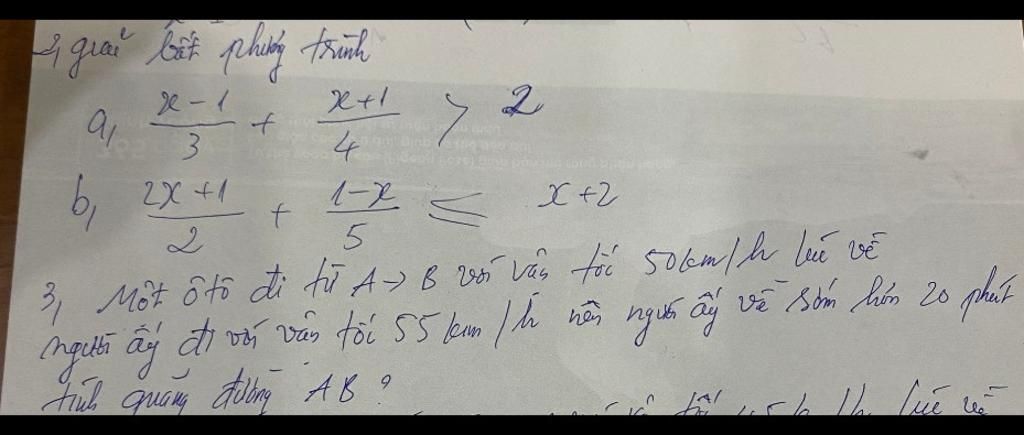 2, giải bất phương trình
a, \frac{x-1}{3} + \frac{x+1}{4} > 2
b, \frac{2x+1}{2} + \frac{1-x}{5} ≤ x+2
3, Một ô tô đi từ A → B với vân tốc 50km/h lúc về
người ấy đi với vân tốc 55 km/h nên người ấy về sớm hơn 20 phút
tính quãng đường AB?
lúc về